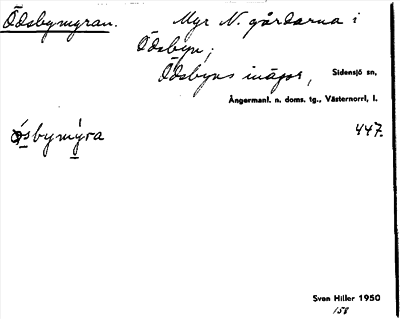 Ödsbymyran. Myr N. gårdarna i
Ödsbyn;
Ödsbyns inägor, Sidensjö sn,
Ångermanl. n. doms. tg., Västernorrl. l.
447.
ø̀sbymy̌ra
Sven Hiller 1950
158